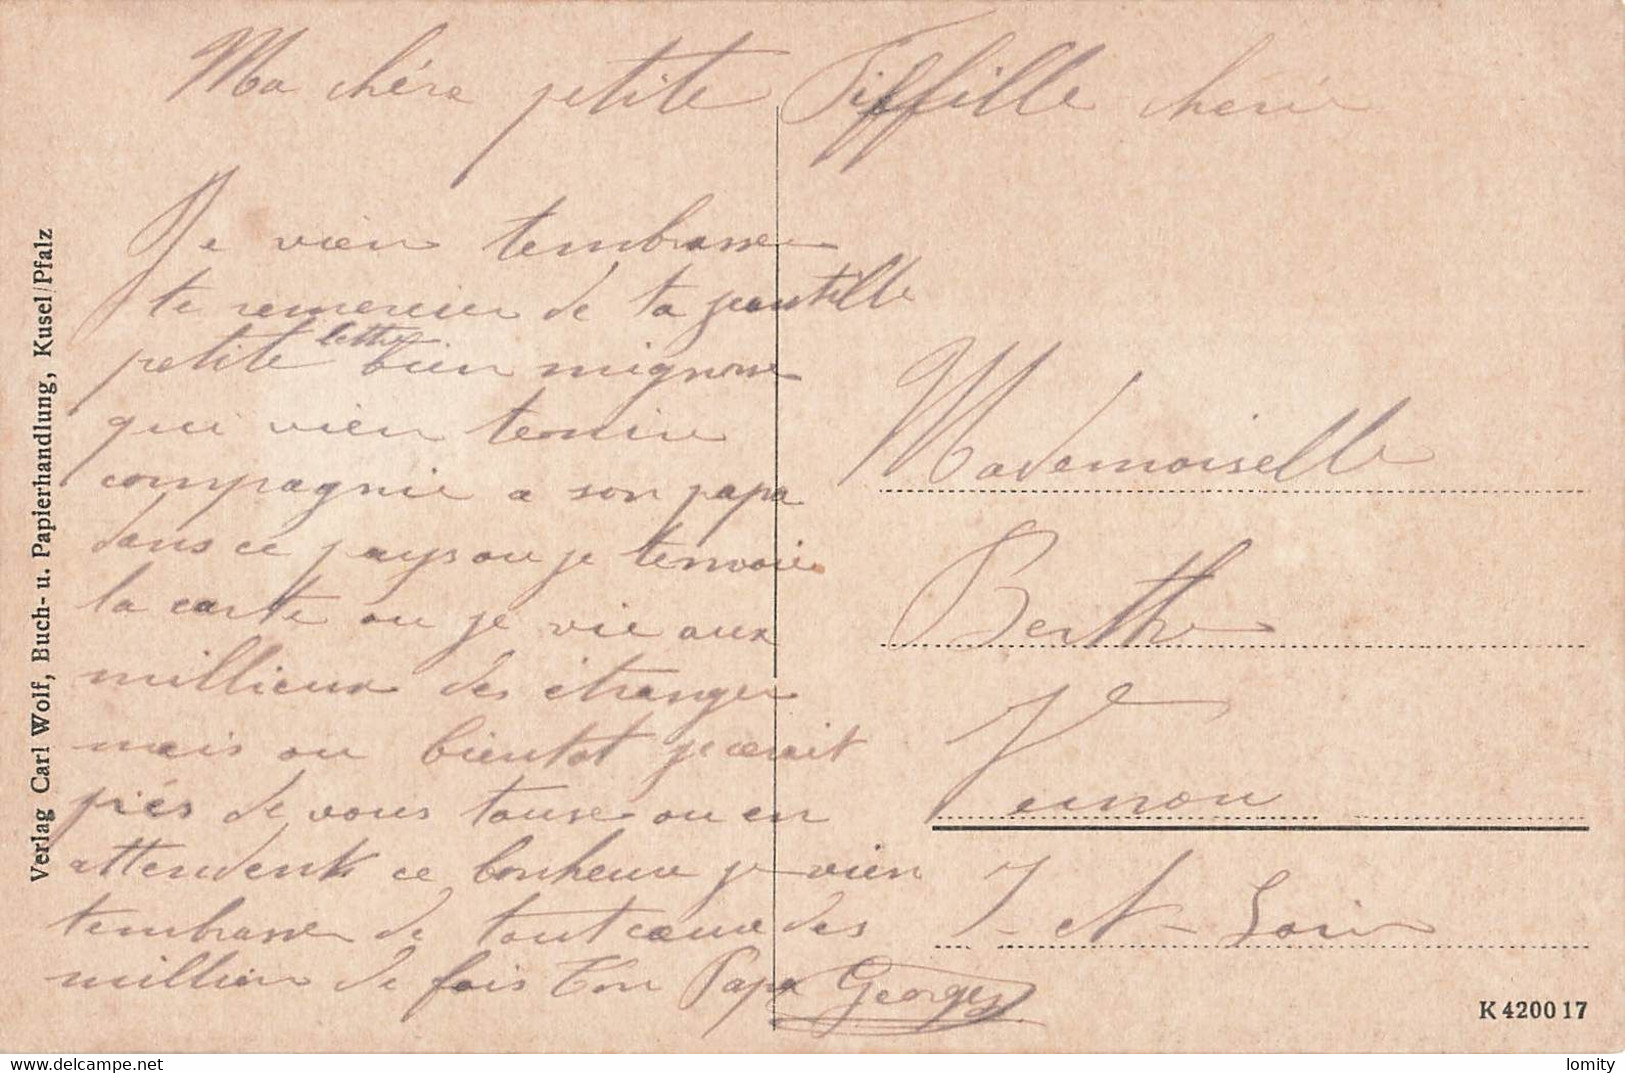 Ma chére petite Fiffille cherie
Je vien tembrasser
te remercier de ta jeantille
petite lettre bien mignone
qui vien tenire
compagnie a son papa
dans ce pays ou je tenvoie
la carte ou je vie aux
millieux des étranger
mais ou bientot je cerait
prés de vous touse ou en
attendent ce bonheure je vien
tembrasse de tout cœure des
million de fois Ton Papa Georges
Mademoiselle
Berthe
Vernou
I-et-Loire
Verlag Carl Wolf, Buch- u. Papierhandlung, Kusel/Pfalz
K 420017
lomity